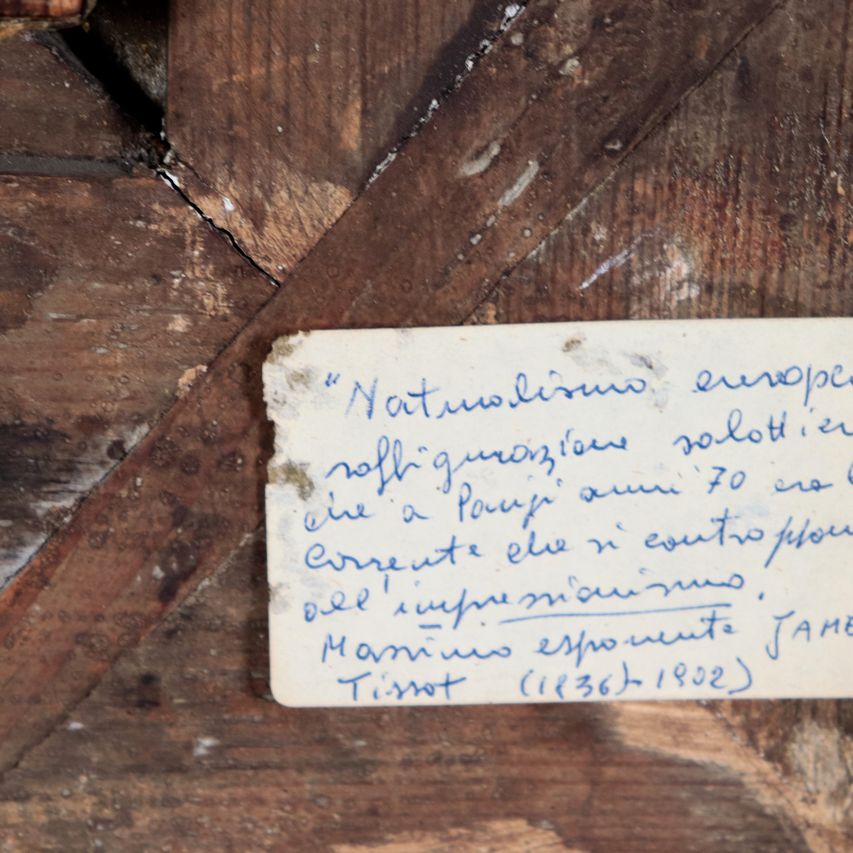 "Naturalismo europe
raffigurazione salottier
che a Parigi anni '70 era l
Corrente che si contrappon
all'impressionismo.
Massimo esponente JAME
Tissot (1836)-1902)